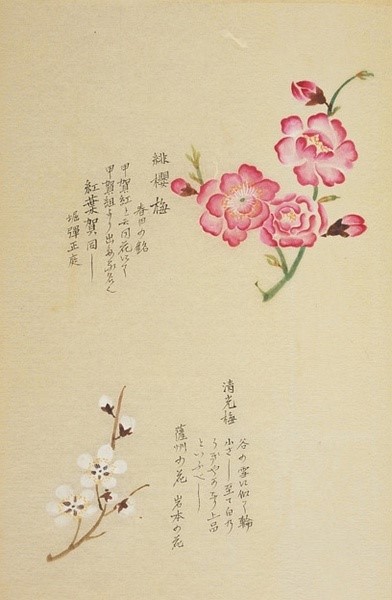 緋櫻梅
春田の銘
甲賀紅と云同花にて
甲賀組より出る
紅葉賀同し
堀彈正庭
清光梅
谷の雪に似て輪
小さし至て白
上品
といふべし
薩州の花 岩本の花